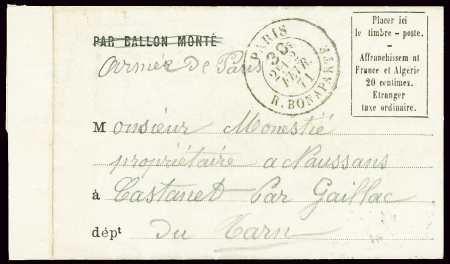 PAR BALLON MONTÉ
Armée De Paris
PARIS
3E
FEVR.
71
R. BONAPARTE
Placer ici
le timbre-poste.
Affranchissem nt
France et Algérie
20 centimes.
Etranger
taxe ordinaire.
Monsieur Monestié
propriétaire a Naussans
à Castanet Par Gaillac
dépt du Tarn